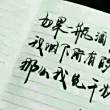 如果一瓶酒
我咽下所有的
那么我先干